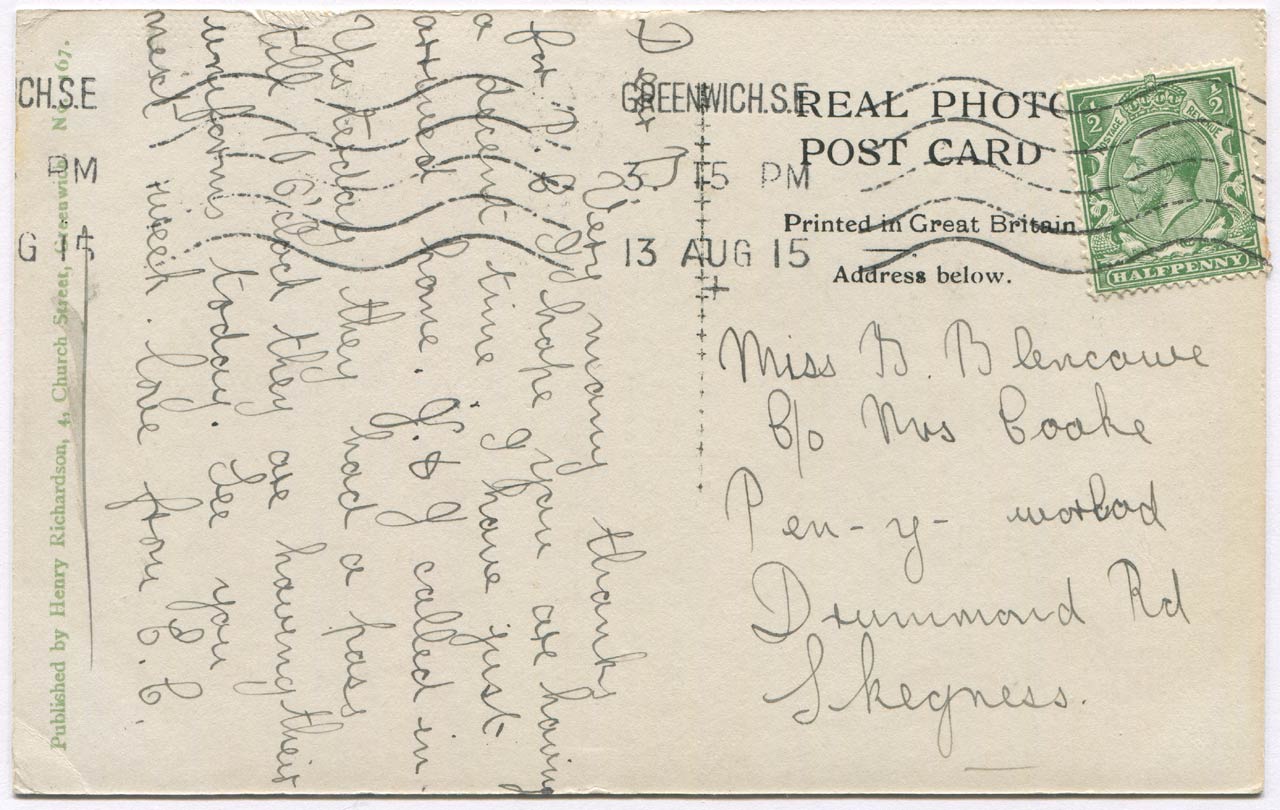 REAL PHOTO
POST CARD
Printed in Great Britain
Address below.
HALFPENNY
POSTAGE REVENUE
1/2 1/2
GREENWICH.S.E
3. 15 PM
13 AUG 15
CH.S.E
PM
G 15
Miss B. Blencowe
C/o Mrs Cooke
Pen-y-
Drummond Rd
Skegness.
Dear
Very many thanks
for P.C. I hope you are having
a decent time I have just
arrived home. J. & I called in
Yesterday they had a pass
till 10 o'clock they are having their
uniforms today. See you
next week. love from C. C.
Published by Henry Richardson, 4, Church Street, Greenwich. No. 167.